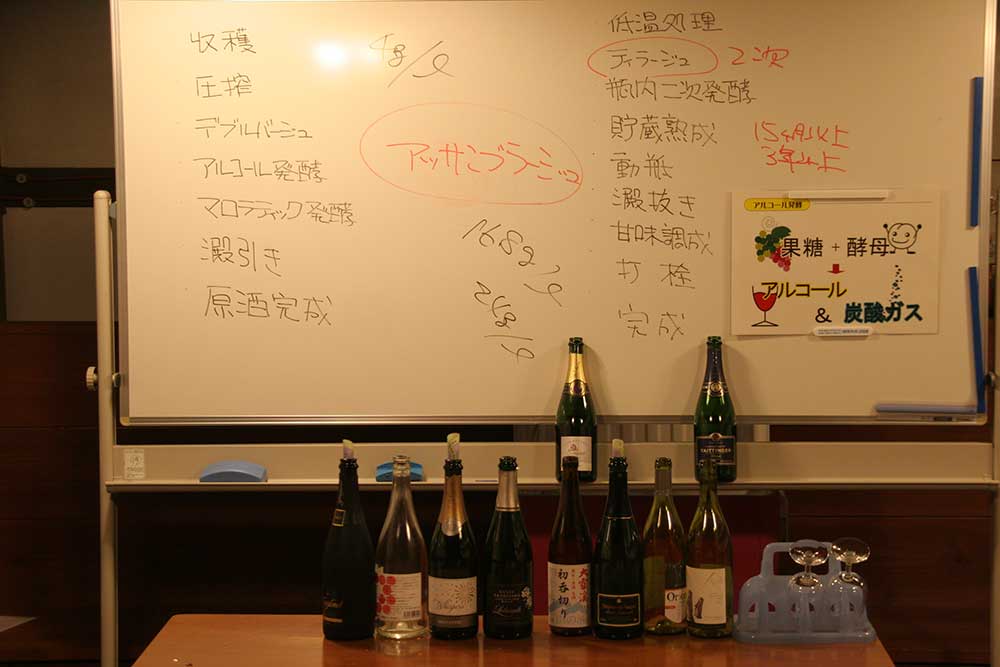 収穫
圧搾
デブルバージュ
アルコール発酵
マロラティック発酵
澱引き
原酒完成
4g/ℓ
アッサンブラージュ
168g/ℓ
24g/ℓ
低温処理
ティラージュ 2次
瓶内二次発酵
貯蔵熟成 15ヶ月以上
3年以上
動瓶
澱抜き
甘味調成
打栓
完成
アルコール発酵
果糖 + 酵母
アルコール
& 炭酸ガス
TAITTINGER
初呑切り